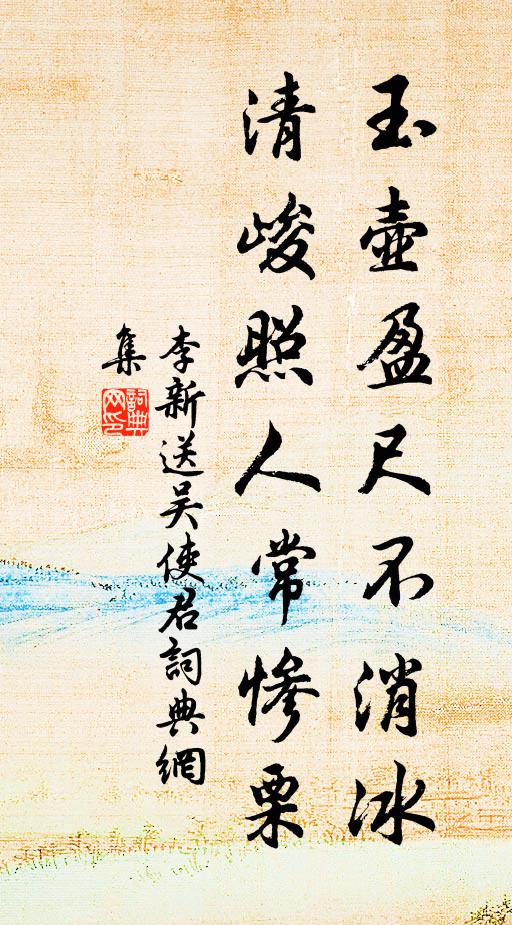 玉壺盈尺不消冰
清峻照人常慘栗
李新送吴使君詞典網
集
詞典
网印